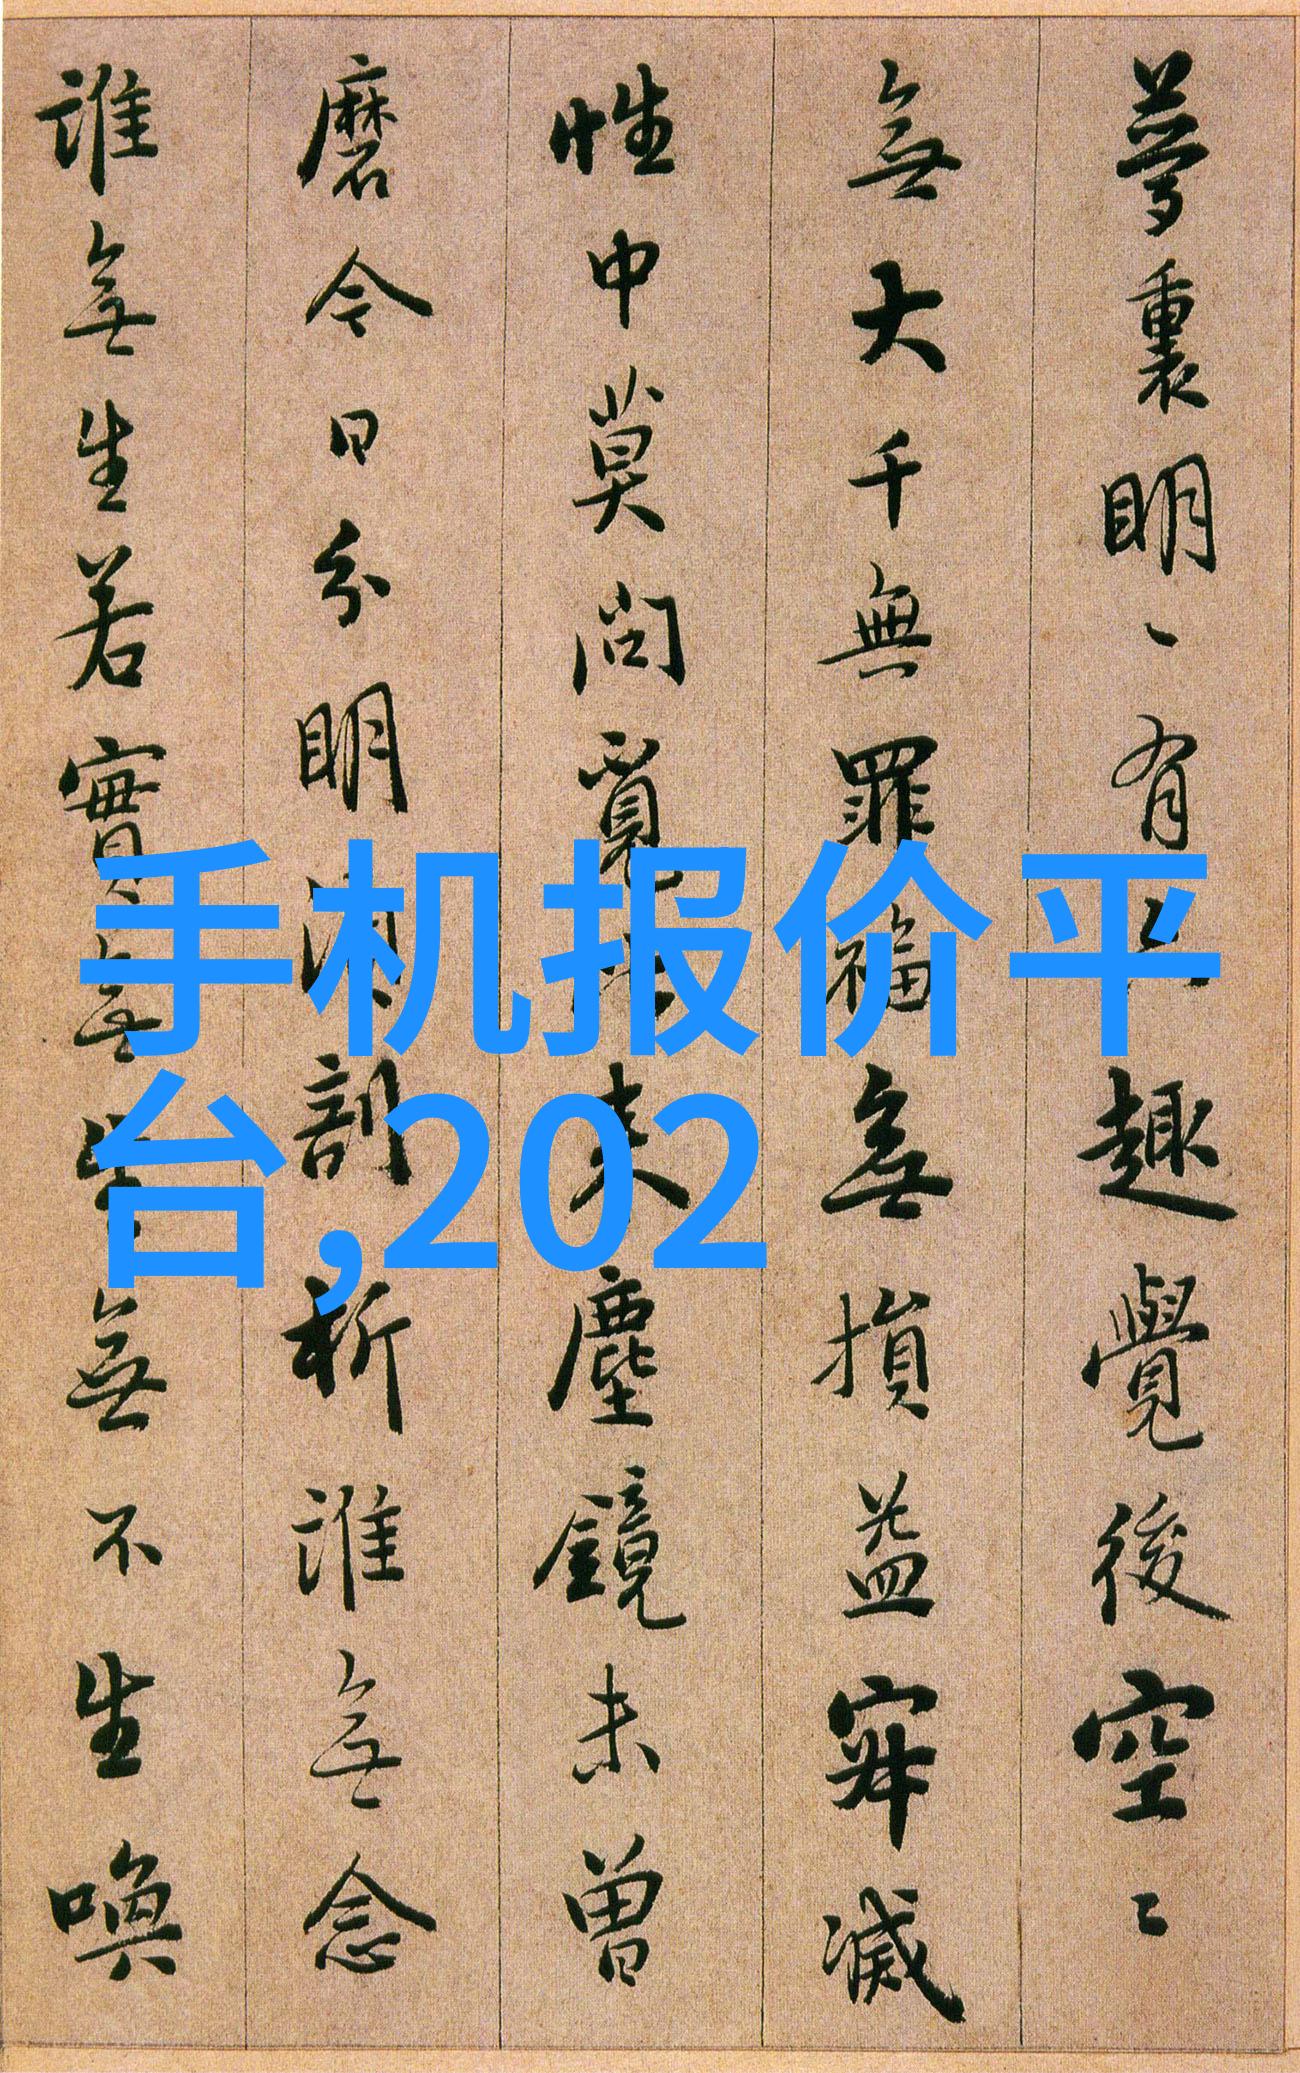 夢裏明〻有趣覺後空〻
無大千無罪福無損益寂滅
性中莫問覓来塵鏡未曽
磨今日分明剖析誰無念
誰無生若實無生無不生喚
手机报价平
台,202